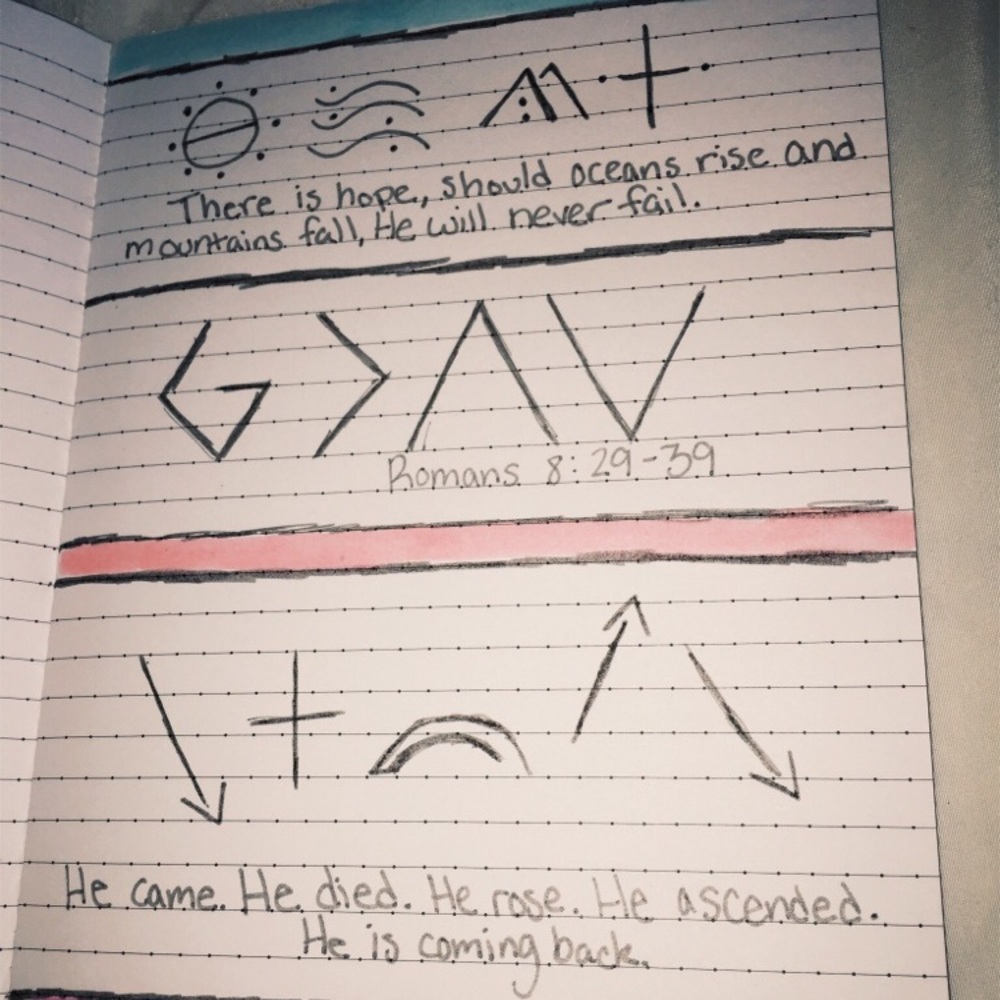 There is hope, should oceans rise and
mountains fall, He will never fail.
G > Λ V
Romans 8:29-39
He came. He died. He rose. He ascended.
He is coming back.